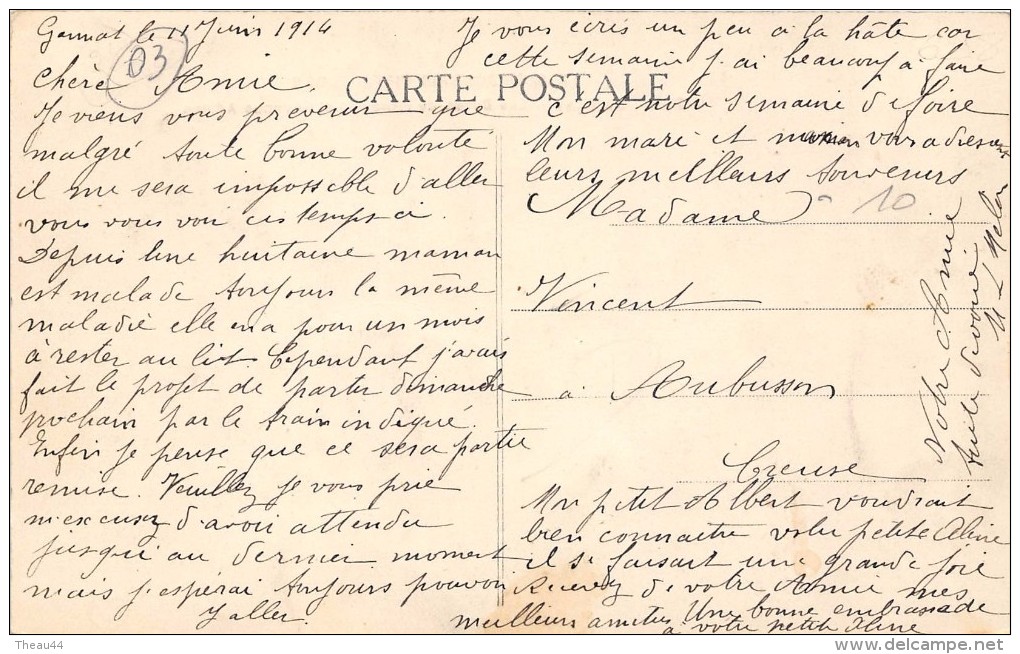 Gannat le 11 Juin 1914
03
Chère Amie,
CARTE POSTALE
Je viens vous prevenir que
malgré toute bonne volonté
il me sera impossible d'aller
vous voir ces temps-ci.
Depuis une huitaine maman
est malade toujours la même
maladie elle en a pour un mois
à rester au lit. Cependant j'avais
fait le projet de partir dimanche
prochain par le train indiqué.
Enfin je pense que ce sera partie
remise. Veuillez je vous prie
m'excuser d'avoir attendu
jusqu'au dernier moment
mais j'espérai toujours pouvoir
y aller.
Je vous écris un peu à la hâte car
cette semaine j'ai beaucoup à faire
c'est notre semaine de foire
Mon mari et maman vous adressent
leurs meilleurs souvenirs
Madame
10
Vincent
à Aubusson
Creuse
Mon petit Albert voudrait
bien connaitre votre petite Aline
il se faisait une grande joie
Recevez de votre Amie mes
meilleurs amitiés Une bonne embrassade
à votre petite Aline
Votre Amie
toute dévouée
Theau44
delcampe.net